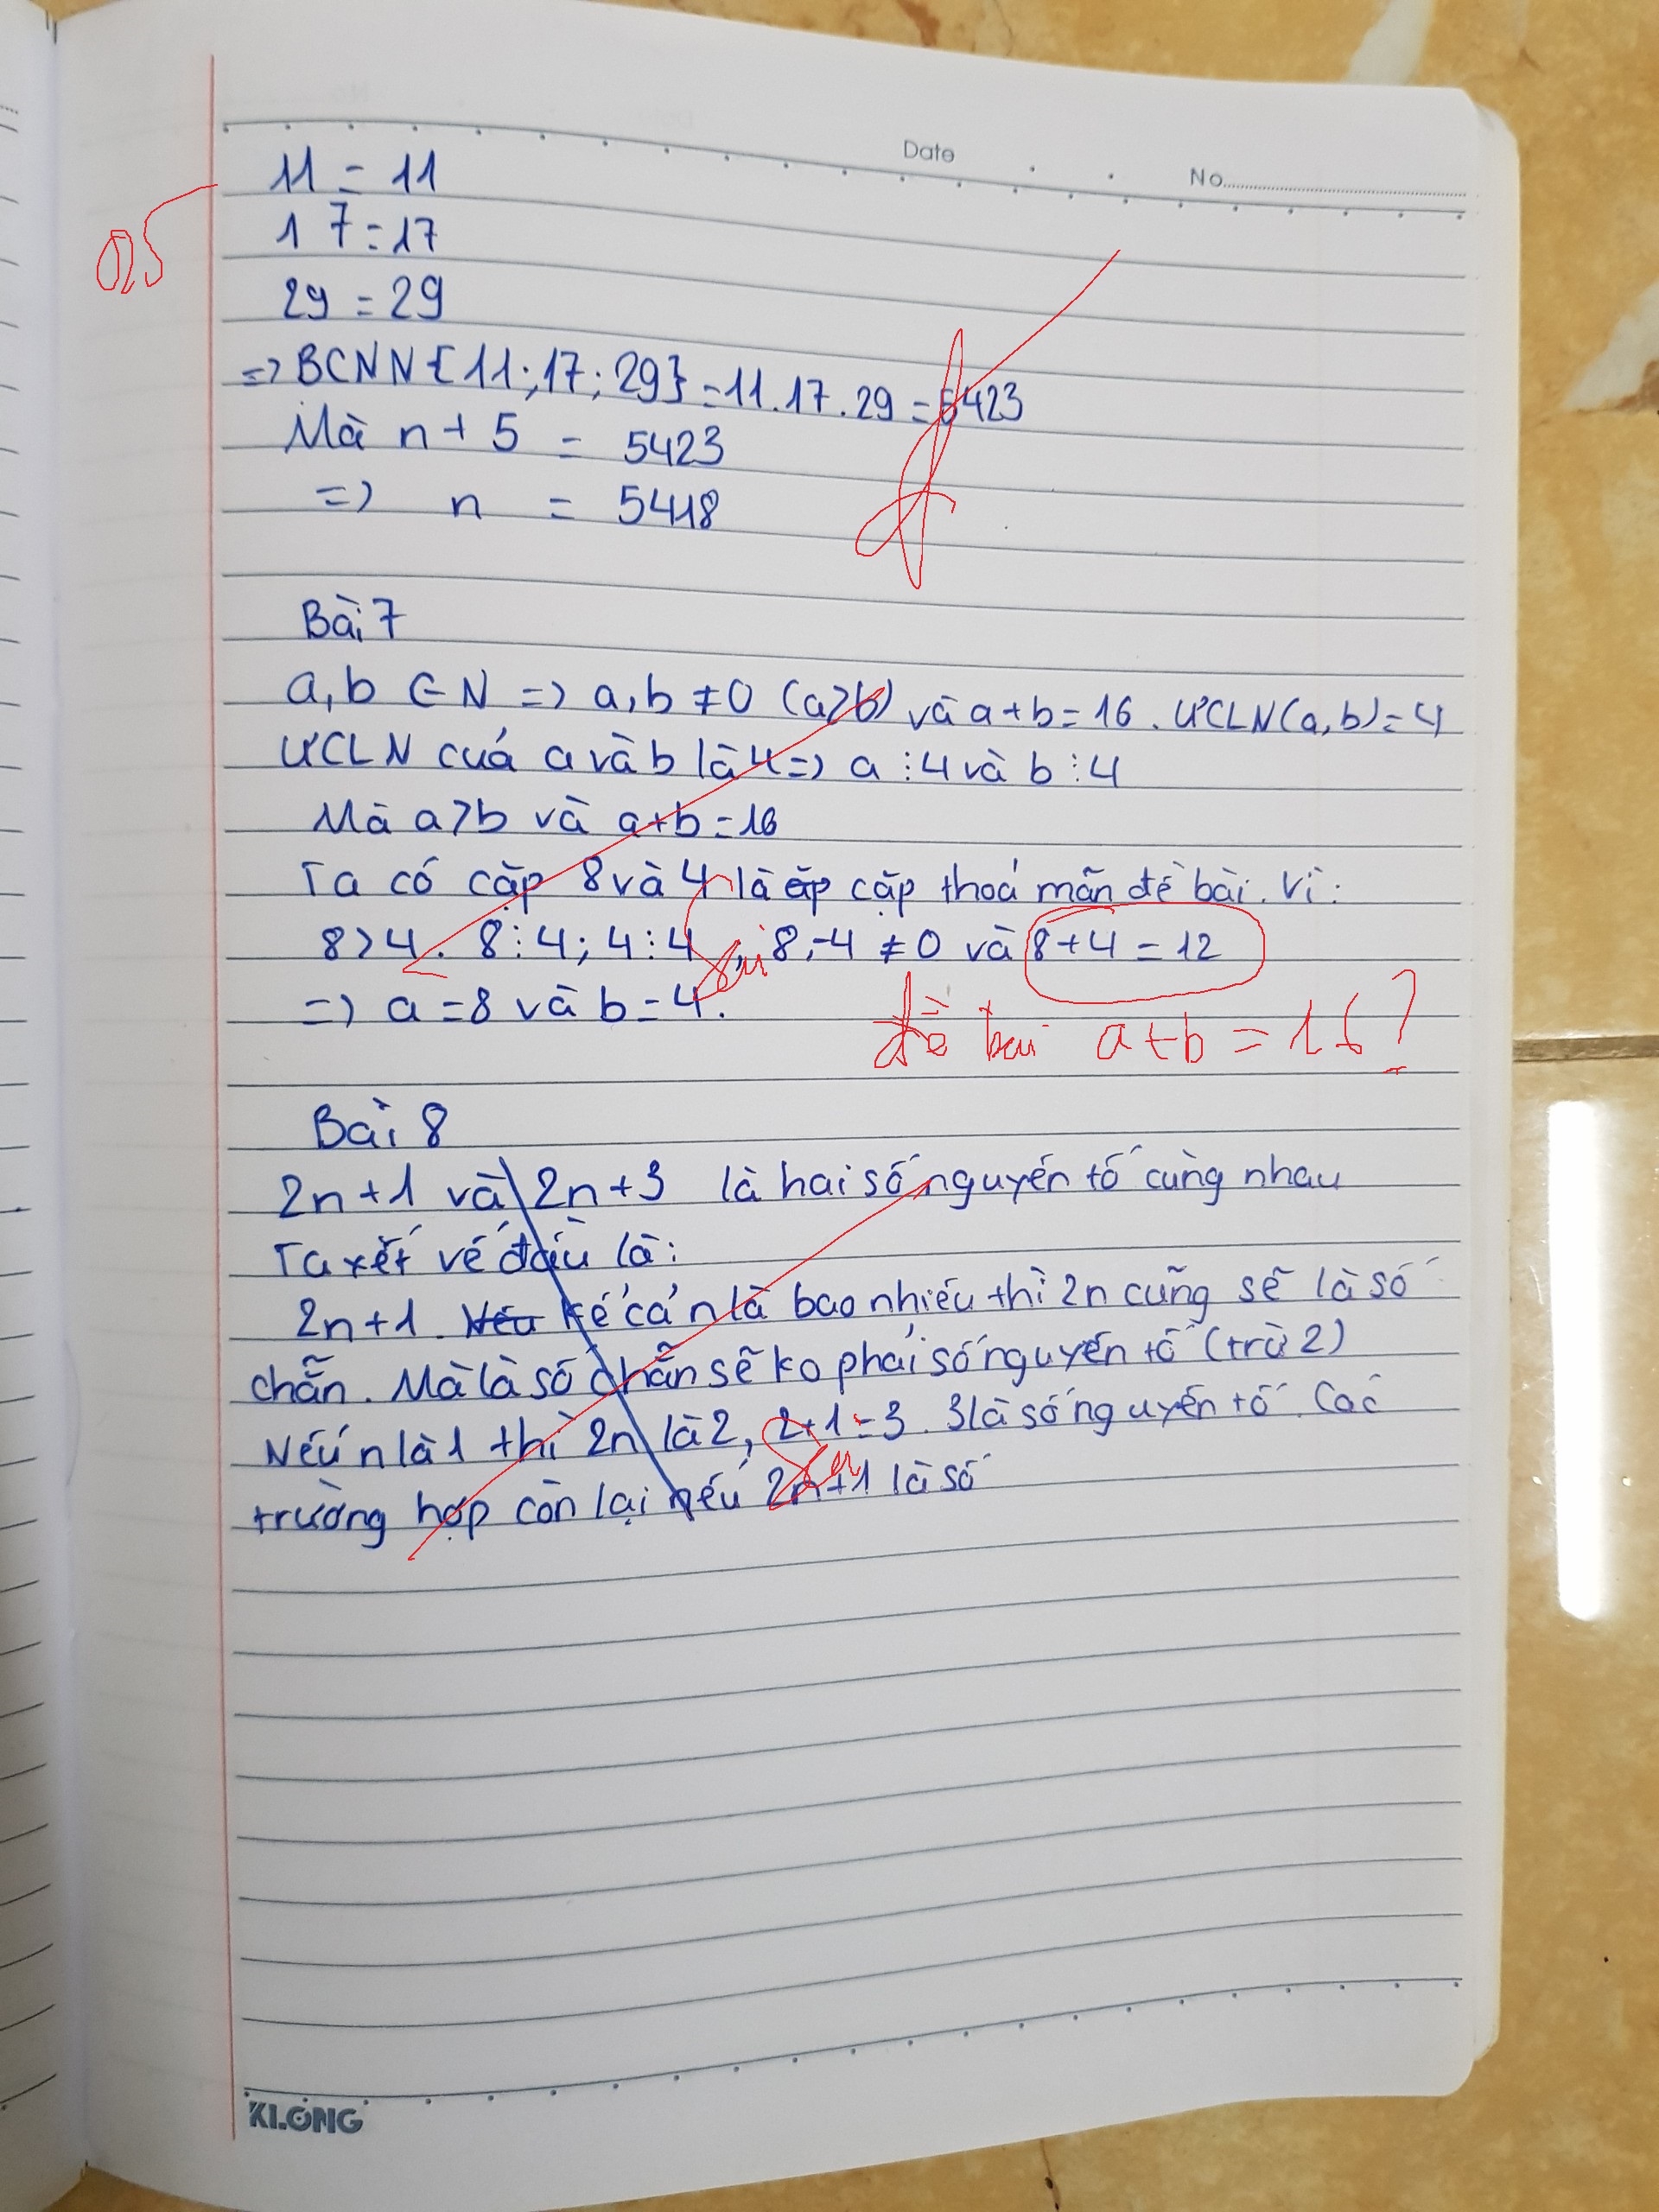 Date
No
11 = 11
0,5
17 = 17
29 = 29
=> BCNN{11;17;29} = 11.17.29 = 5423
Mà n + 5 = 5423
=> n = 5418
đ
Bài 7
a,b ∈ N => a,b ≠ 0 (a>b) và a+b = 16. ƯCLN(a,b) = 4
ƯCLN của a và b là 4 => a ⋮ 4 và b ⋮ 4
Mà a>b và a+b = 16
Ta có cặp 8 và 4 là cặp thoả mãn đề bài. Vì:
8>4. 8⋮4; 4⋮4, 8,4 ≠ 0 và 8+4 = 12
sai
=> a = 8 và b = 4.
đề bài a+b = 16?
Bài 8
2n+1 và 2n+3 là hai số nguyên tố cùng nhau
Ta xét vế đầu là:
2n+1. Nếu kể cả n là bao nhiêu thì 2n cũng sẽ là số
chẵn. Mà là số chẵn sẽ ko phải số nguyên tố (trừ 2)
Nếu n là 1 thì 2n là 2, 2+1=3. 3 là số nguyên tố. Các
sai
trường hợp còn lại nếu 2n+1 là số
KLONG